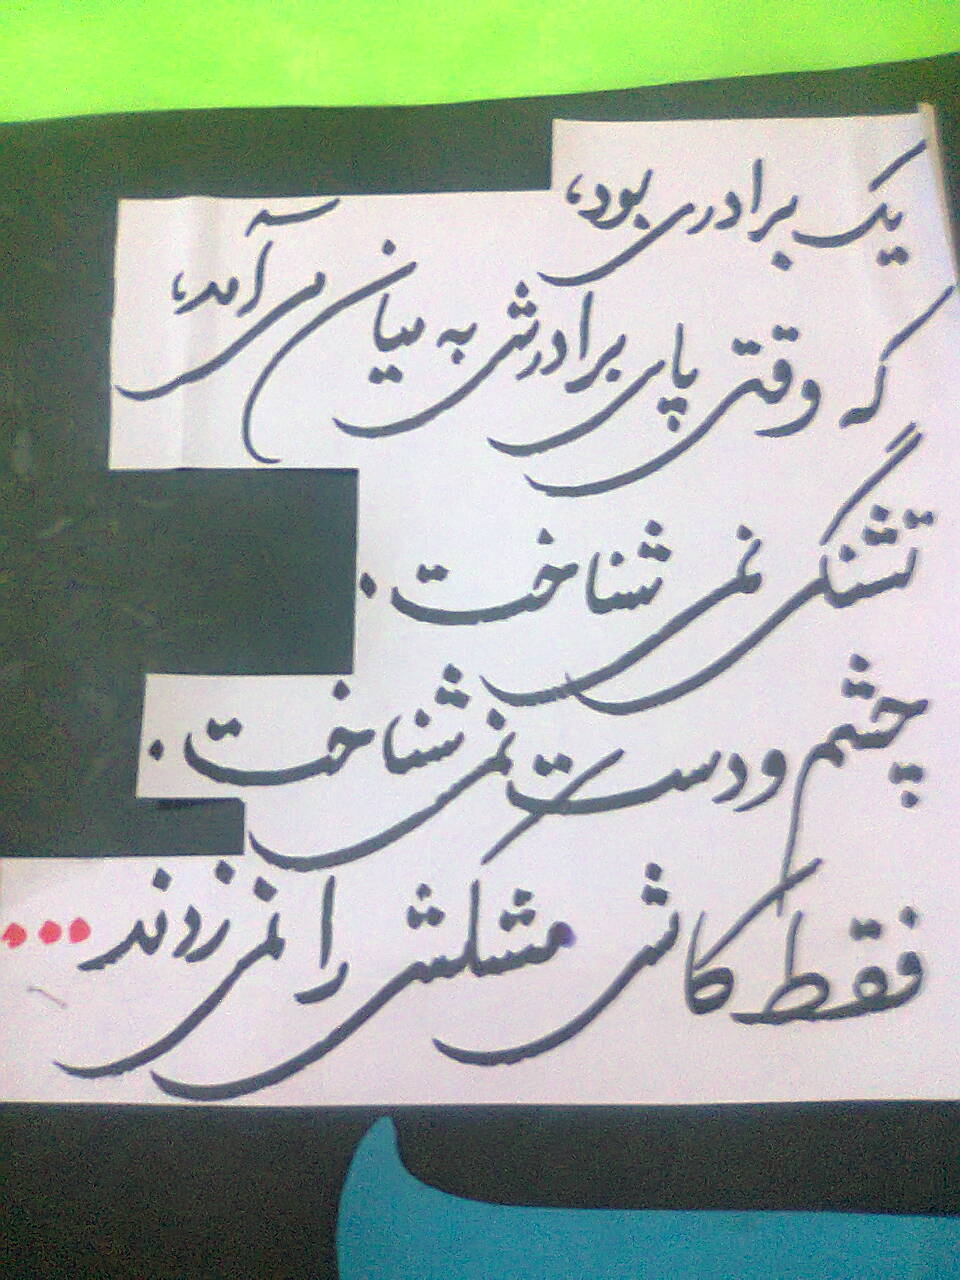 یک برادری بود،
که وقتی پای برادرش به میان می آمد،
تشنگی نمی شناخت.
چشم و دست نمی شناخت.
فقط کاش مشکش را نمی زدند...